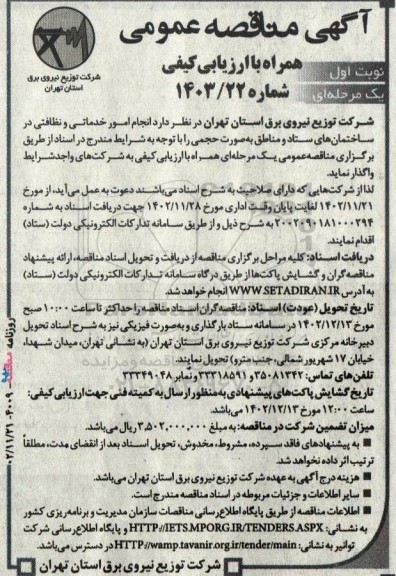 آگهی مناقصه عمومی
همراه با ارزیابی کیفی
شماره ۱۴۰۳/۲۲
نوبت اول
یک مرحله‌ای
شرکت توزیع نیروی برق
استان تهران
شرکت توزیع نیروی برق استان تهران در نظر دارد انجام امور خدماتی و نظافتی در
ساختمان‌های ستاد و مناطق به‌صورت حجمی را با توجه به شرایط مندرج در اسناد از طریق
برگزاری مناقصه عمومی یک مرحله‌ای همراه با ارزیابی کیفی به شرکت‌های واجد شرایط
واگذار نماید.
لذا از شرکت‌هایی که دارای صلاحیت به شرح اسناد می‌باشند دعوت به عمل می‌آید، از مورخ
۱۴۰۲/۱۱/۲۱ لغایت پایان وقت اداری مورخ ۱۴۰۲/۱۱/۲۸ جهت دریافت اسناد به شماره
۲۰۰۲۰۹۰۱۸۱۰۰۰۲۹۴ به شرح ذیل و از طریق سامانه تدارکات الکترونیکی دولت (ستاد)
اقدام نمایند.
دریافت اسناد: کلیه مراحل برگزاری مناقصه از دریافت و تحویل اسناد مناقصه، ارائه پیشنهاد
مناقصه گران و گشایش پاکت‌ها از طریق درگاه سامانه تدارکات الکترونیکی دولت (ستاد)
به آدرس WWW.SETADIRAN.IR انجام خواهد شد.
تاریخ تحویل (عودت) اسناد: مناقصه گران اسناد مناقصه را حداکثر تا ساعت ۱۰:۰۰ صبح
مورخ ۱۴۰۲/۱۲/۱۳ در سامانه ستاد بارگذاری و به‌صورت فیزیکی نیز به شرح اسناد تحویل
دبیرخانه مرکزی شرکت توزیع نیروی برق استان تهران (به نشانی: تهران، میدان شهدا،
خیابان ۱۷ شهریور شمالی، جنب مترو) تحویل نمایند.
تلفن‌های تماس: ۳۵۰۸۱۳۴۲ و ۳۳۳۱۸۵۹۱ و نمابر ۳۳۳۴۹۰۴۸
تاریخ گشایش پاکت‌های پیشنهادی به منظور ارسال به کمیته فنی جهت ارزیابی کیفی:
ساعت ۱۲:۰۰ مورخ ۱۴۰۲/۱۲/۱۳ می‌باشد.
میزان تضمین شرکت در مناقصه: به مبلغ ۳,۵۰۲,۰۰۰,۰۰۰ ریال می‌باشد.
■ به پیشنهادهای فاقد سپرده، مشروط، مخدوش، تحویل اسناد بعد از انقضای مدت، مطلقاً
ترتیب اثر داده نخواهد شد.
■ هزینه درج آگهی به عهده شرکت توزیع نیروی برق استان تهران می‌باشد.
■ سایر اطلاعات و جزئیات مربوطه در اسناد مناقصه مندرج است.
■ اطلاعات مناقصه از طریق پایگاه اطلاع رسانی مناقصات سازمان مدیریت و برنامه‌ریزی کشور
به نشانی: HTTP//IETS.MPORG.IR/TENDERS.ASPX و پایگاه اطلاع رسانی شرکت
توانیر به نشانی: HTTP//wamp.tavanir.org.ir/tender/main در دسترس می‌باشد.
شرکت توزیع نیروی برق استان تهران
روزنامه ۴۰۰۹ - ۰۲/۱۱/۲۱